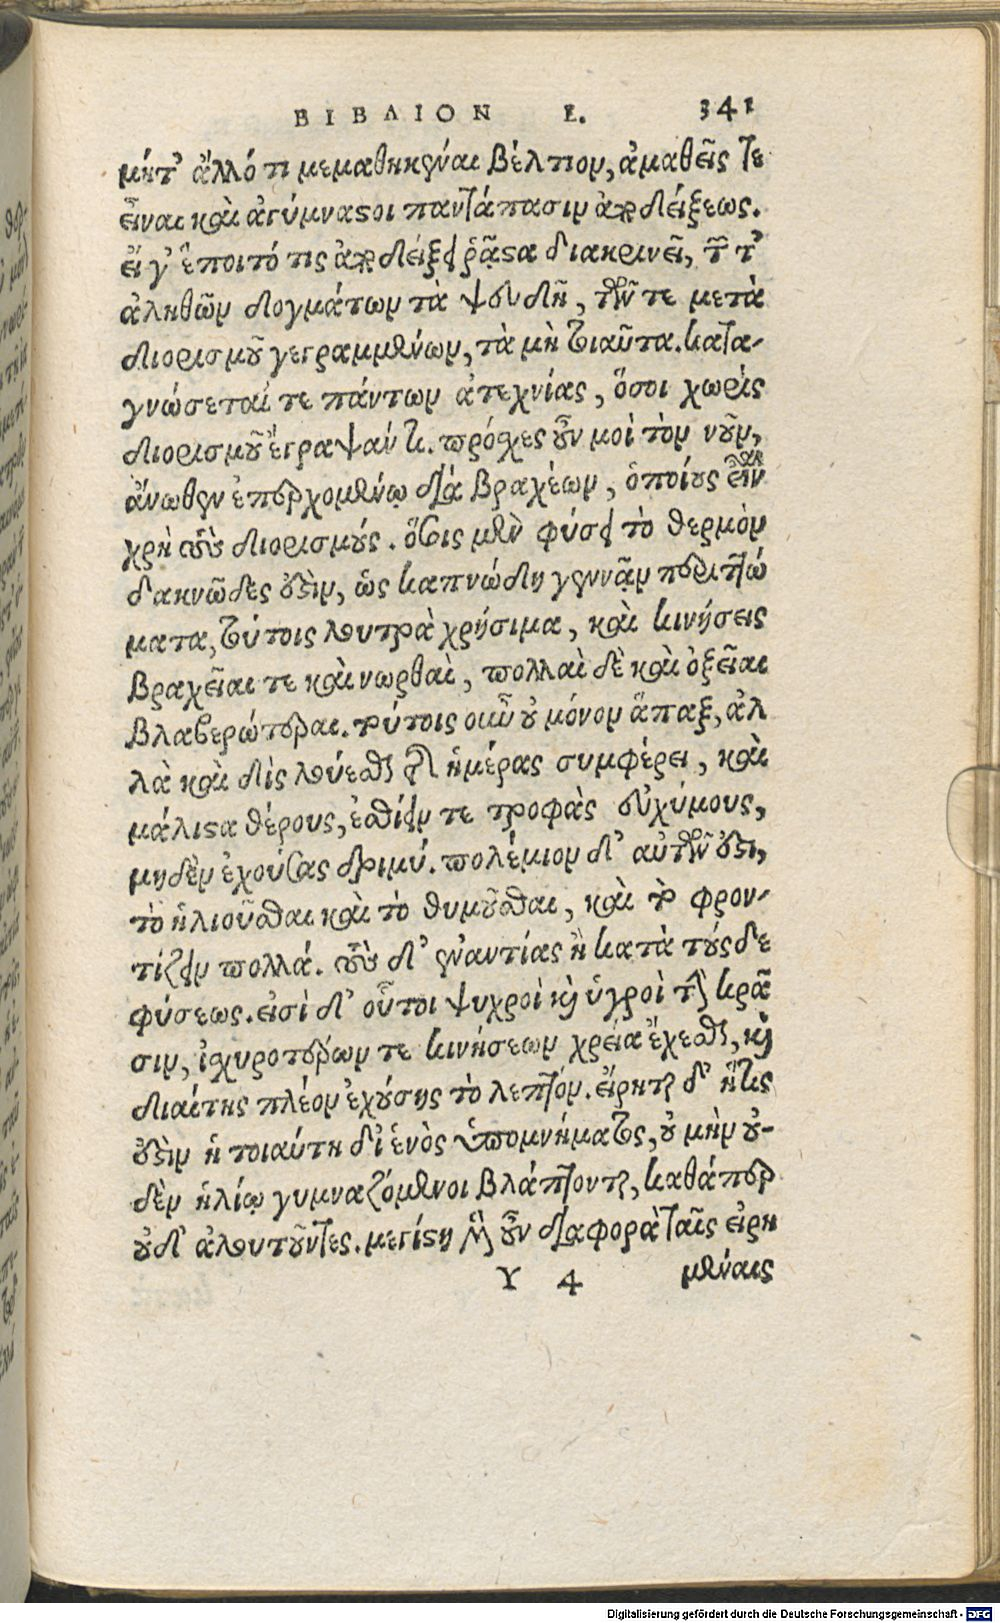 ΒΙΒΛΙΟΝ Ε. 341
μήτ' ἄλλό τι μεμαθηκέναι βέλτιον, ἀμαθεῖς τε
εἶναι καὶ ἀγύμναστοι παντάπασιν ἀποδείξεως.
εἴ γ' ἕποιτό τις ἀποδείξει ῥᾷστα διακρινεῖ, τῶν τ'
ἀληθῶν δογμάτων τὰ ψευδῆ, τῶν τε μετὰ
διορισμοῦ γεγραμμένων, τὰ μὴ τοιαῦτα. κατα-
γνώσεταί τε πάντων ἀτεχνίας, ὅσοι χωρὶς
διορισμοῦ ἔγραψάν τι. πρόσχες οὖν μοὶ τὸν νοῦν,
ἄνωθεν ἐπερχομένῳ διὰ βραχέων, ὁποίους εἶναι
χρὴ τοὺς διορισμούς. ὅστις μὲν φύσει τὸ θερμὸν
δακνῶδες ἐστὶν, ὡς καπνώδη γεννᾷν περιττώ
ματα, τούτοις λουτρὰ χρήσιμα, καὶ κινήσεις
βραχεῖαι τε καὶ νωθραὶ, πολλαὶ δὲ καὶ ὀξεῖαι
βλαβερώτεραι. τούτοις οὖν οὐ μόνον ἅπαξ, ἀλ
λὰ καὶ δὶς λούεσθαι τῆς ἡμέρας συμφέρει, καὶ
μάλιστα θέρους, ἐσθίειν τε τροφὰς εὐχύμους,
μηδὲν ἐχούσας δριμύ. πολέμιον δ' αὐτῶν ἐστι,
τὸ ἡλιοῦσθαι καὶ τὸ θυμοῦσθαι, καὶ τὸ φρον-
τίζειν πολλά. τοὺς δ' ἐναντίας ἢ κατὰ τούςδε
φύσεως. εἰσὶ δ' οὗτοι ψυχροὶ καὶ ὑγροὶ τὴν κρᾶ
σιν, ἰσχυροτέρων τε κινήσεων χρεία ἔχεσθαι, καὶ
διαίτης πλέον ἐχούσης τὸ λεπτόν. εἴρηται δ' ἥτις
ἐστὶν ἡ τοιαύτη δι' ἑνὸς ὑπομνήματος, οὐ μὴν οὐ-
δὲν ἡλίῳ γυμναζόμενοι βλάπτονται, καθάπερ
οὐδ' ἀλουτοῦντες. μεγίστη μὲν οὖν διαφορὰ ταῖς εἰρη
Υ 4 μέναις
Digitalisierung gefördert durch die Deutsche Forschungsgemeinschaft - DFG